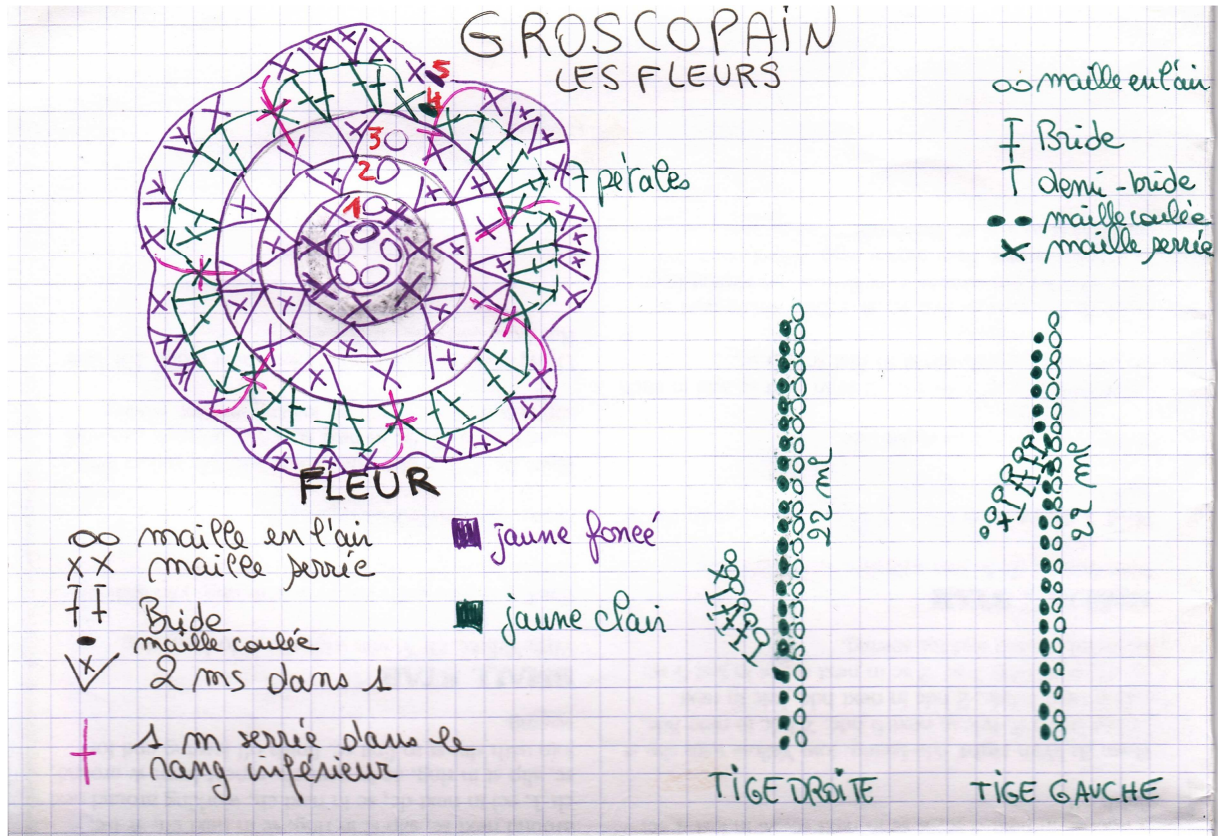 GROSCOPAIN
LES FLEURS
maille en l'air
Bride
demi-bride
maille coulée
maille serrée
5
4
3
2
1
7 pétales
FLEUR
maille en l'air
maille serrée
Bride
maille coulée
2 ms dans 1
1 m serrée dans le
rang inférieur
jaune foncé
jaune clair
22 ml
22 ml
TIGE DROITE
TIGE GAUCHE